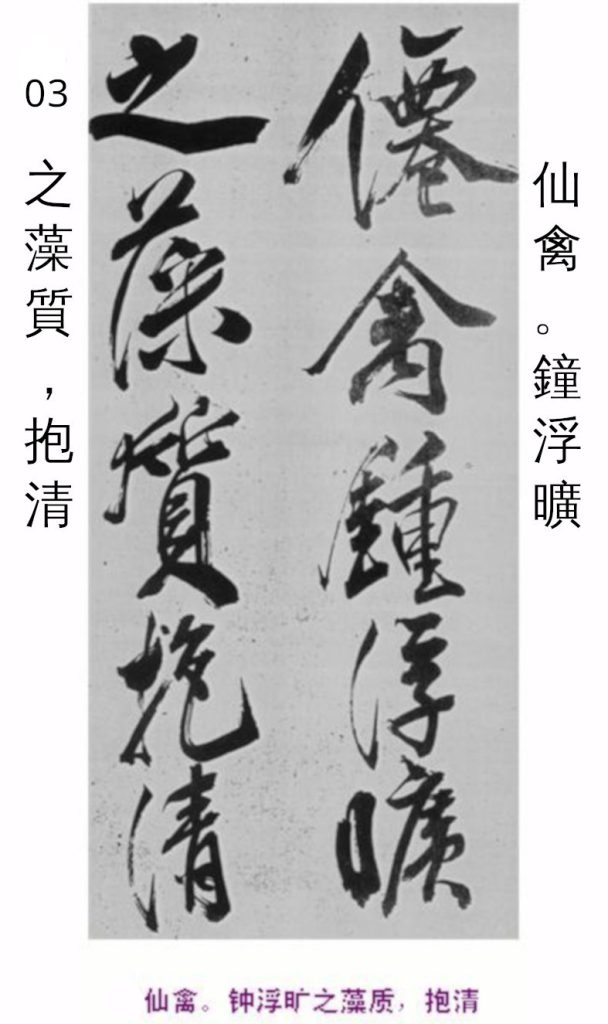 仙禽。鐘浮曠
僊禽鍾浮曠
之藻質抱清
03
之藻質，抱清
仙禽。钟浮旷之藻质，抱清